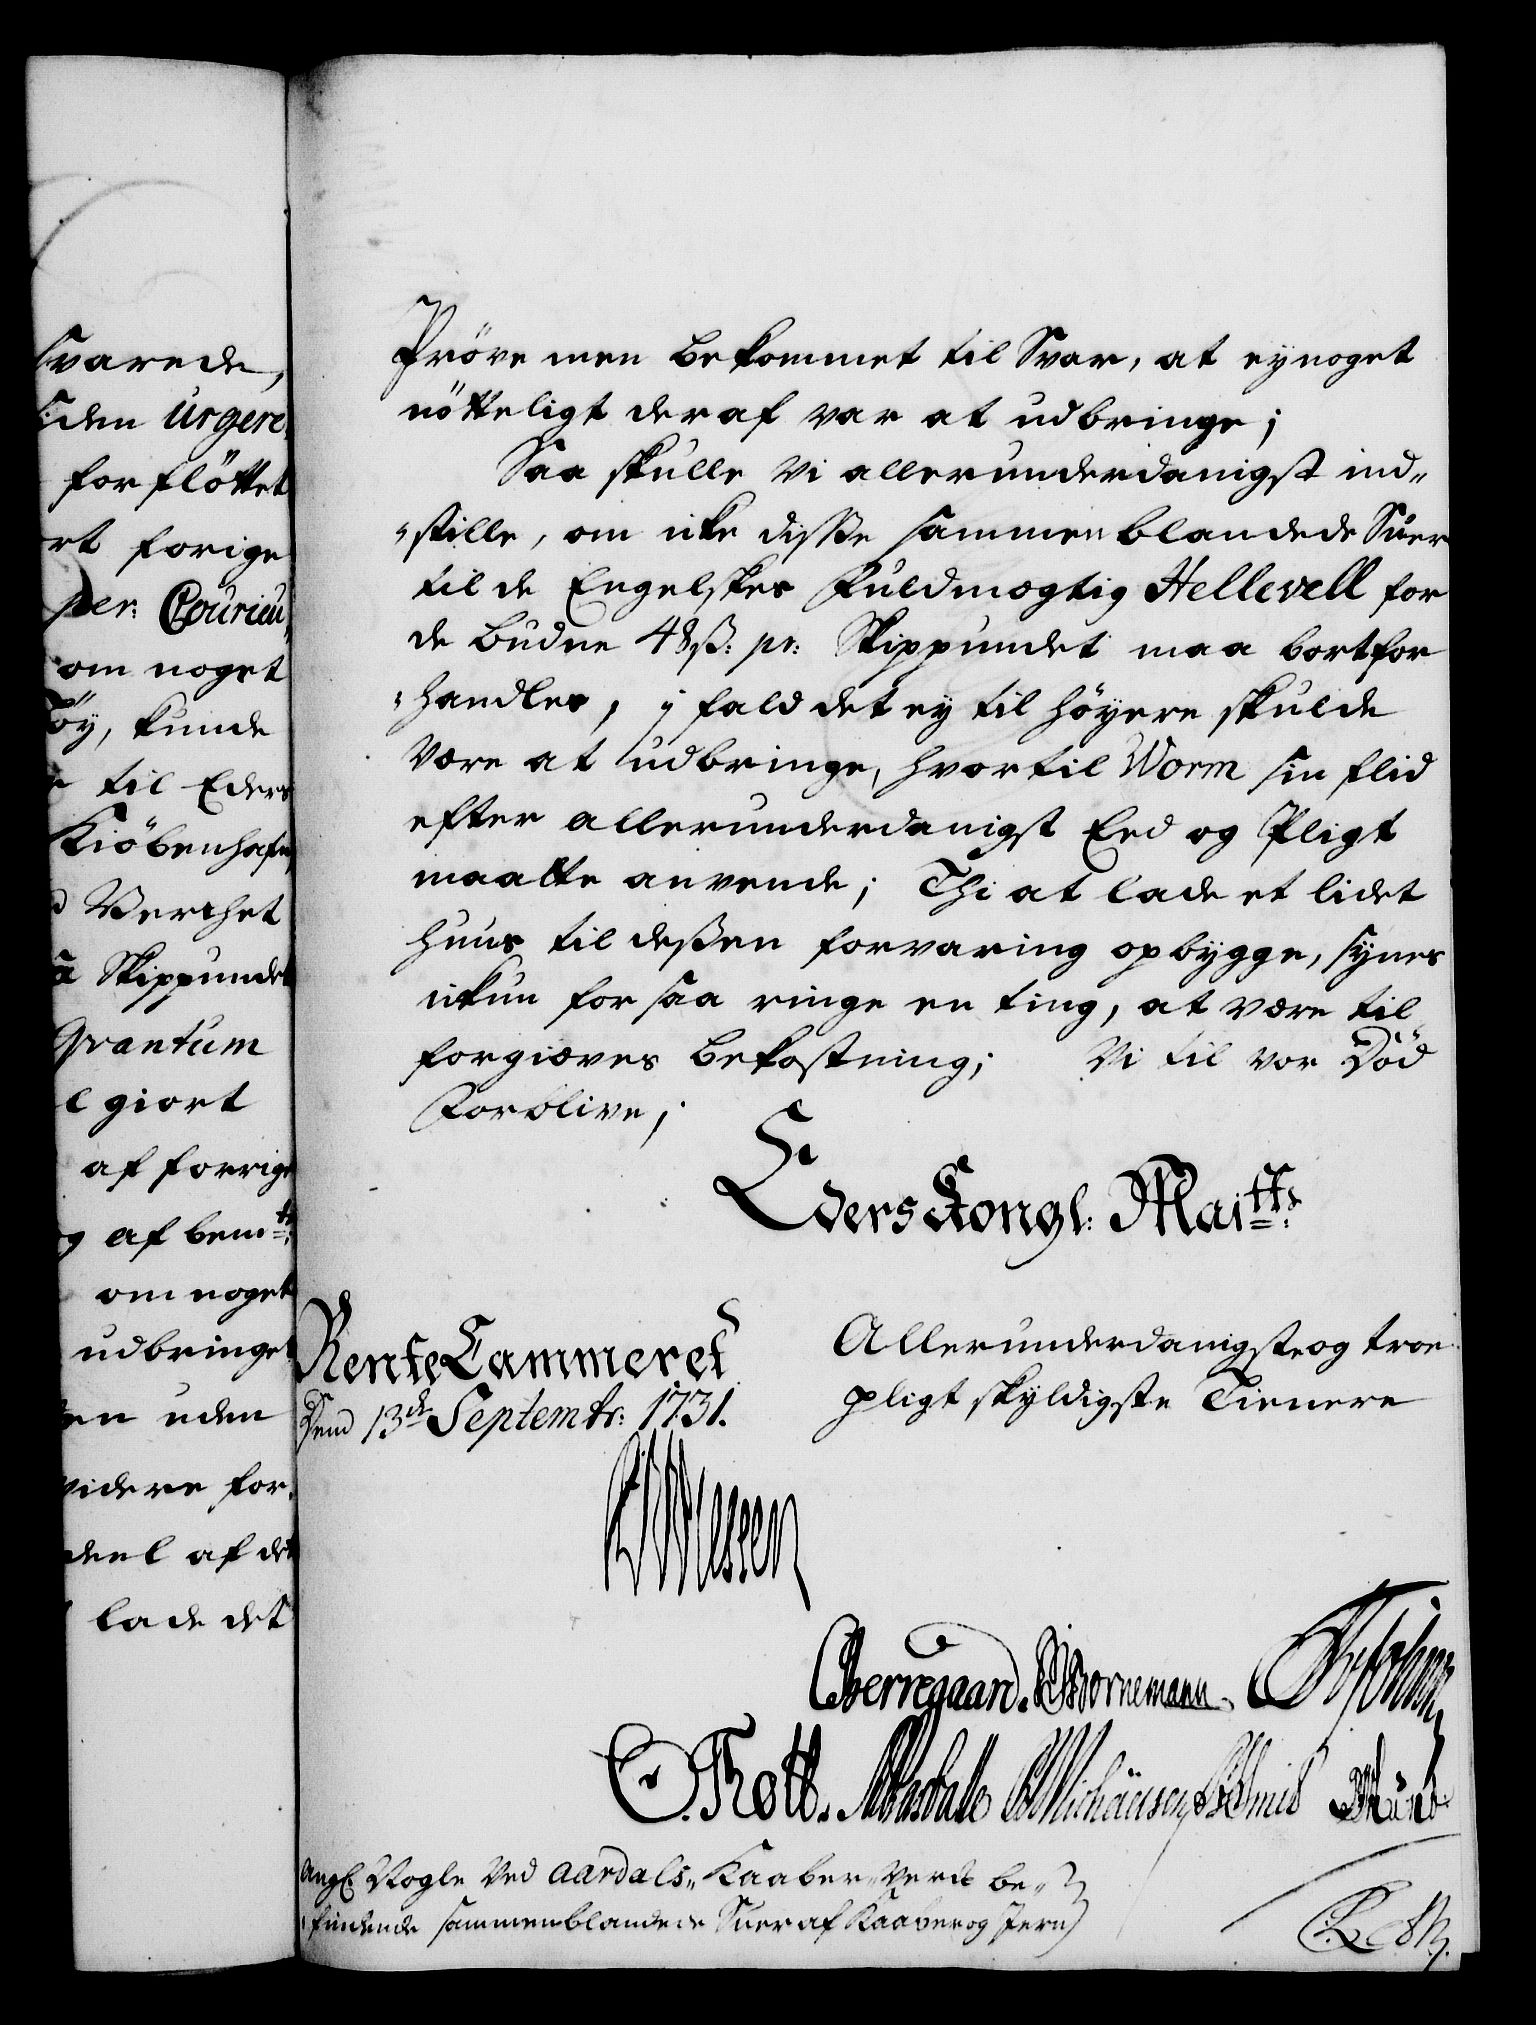 svarede,
siden urgere
forflöttet
rt forige
per: Courieu
om noget
öy, kunde
til Eders
Kiöbenhafn
Verchet
a Skippundet
Qvantum
l giort
af forrige
g af bemte:
om noget
udbringe
en uden
videre for
deel af det
lade det
Pröve men bekommet til Svar, at ey noget
nötteligt deraf var at udbringe;
Saa skulle Vi allerunderdanigst ind„
„stille, om icke disse sammenblandede Suer
til de Engelskes Fuldmægtig Hellevell for
de budne 48 ß: pr: Skippundet maa bortfor
„handles, i fald det ey til höyere skulde
være at udbringe, hvortil Worm sin flid
efter allerunderdanigst Eed og Pligt
maatte anvende; Thi at lade et lidet
huus til deßen forvaring opbygge, synes
ickun for saa ringe en ting, at være til
forgieves bekostning; Vi til vor Död
Forblive;
Eders Kongl: Maitts:
RenteCammeret
Dend 13de Septembr: 1731.
Allerunderdanigste og troe
pligtskyldigste Tienere
Berregaard. Bornemann
O. Thott.
Angl: Nogle Ved Aardals„ Kaaber„Verck be„
findende sammenblandede Suer af Kaaber og Jern)